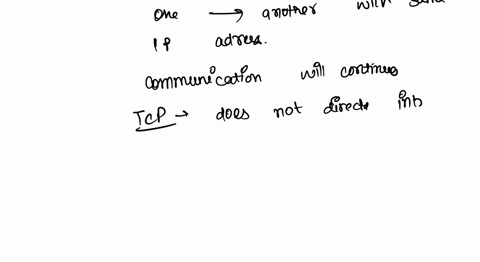 one → another with same
IP adress.
communication will continues
TCP → does not direct int